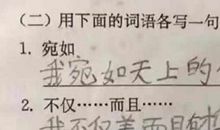 (二)用下面的词语各写一句
1. 宛如
我宛如天上的
2. 不仅……而且……
我不仅美而且